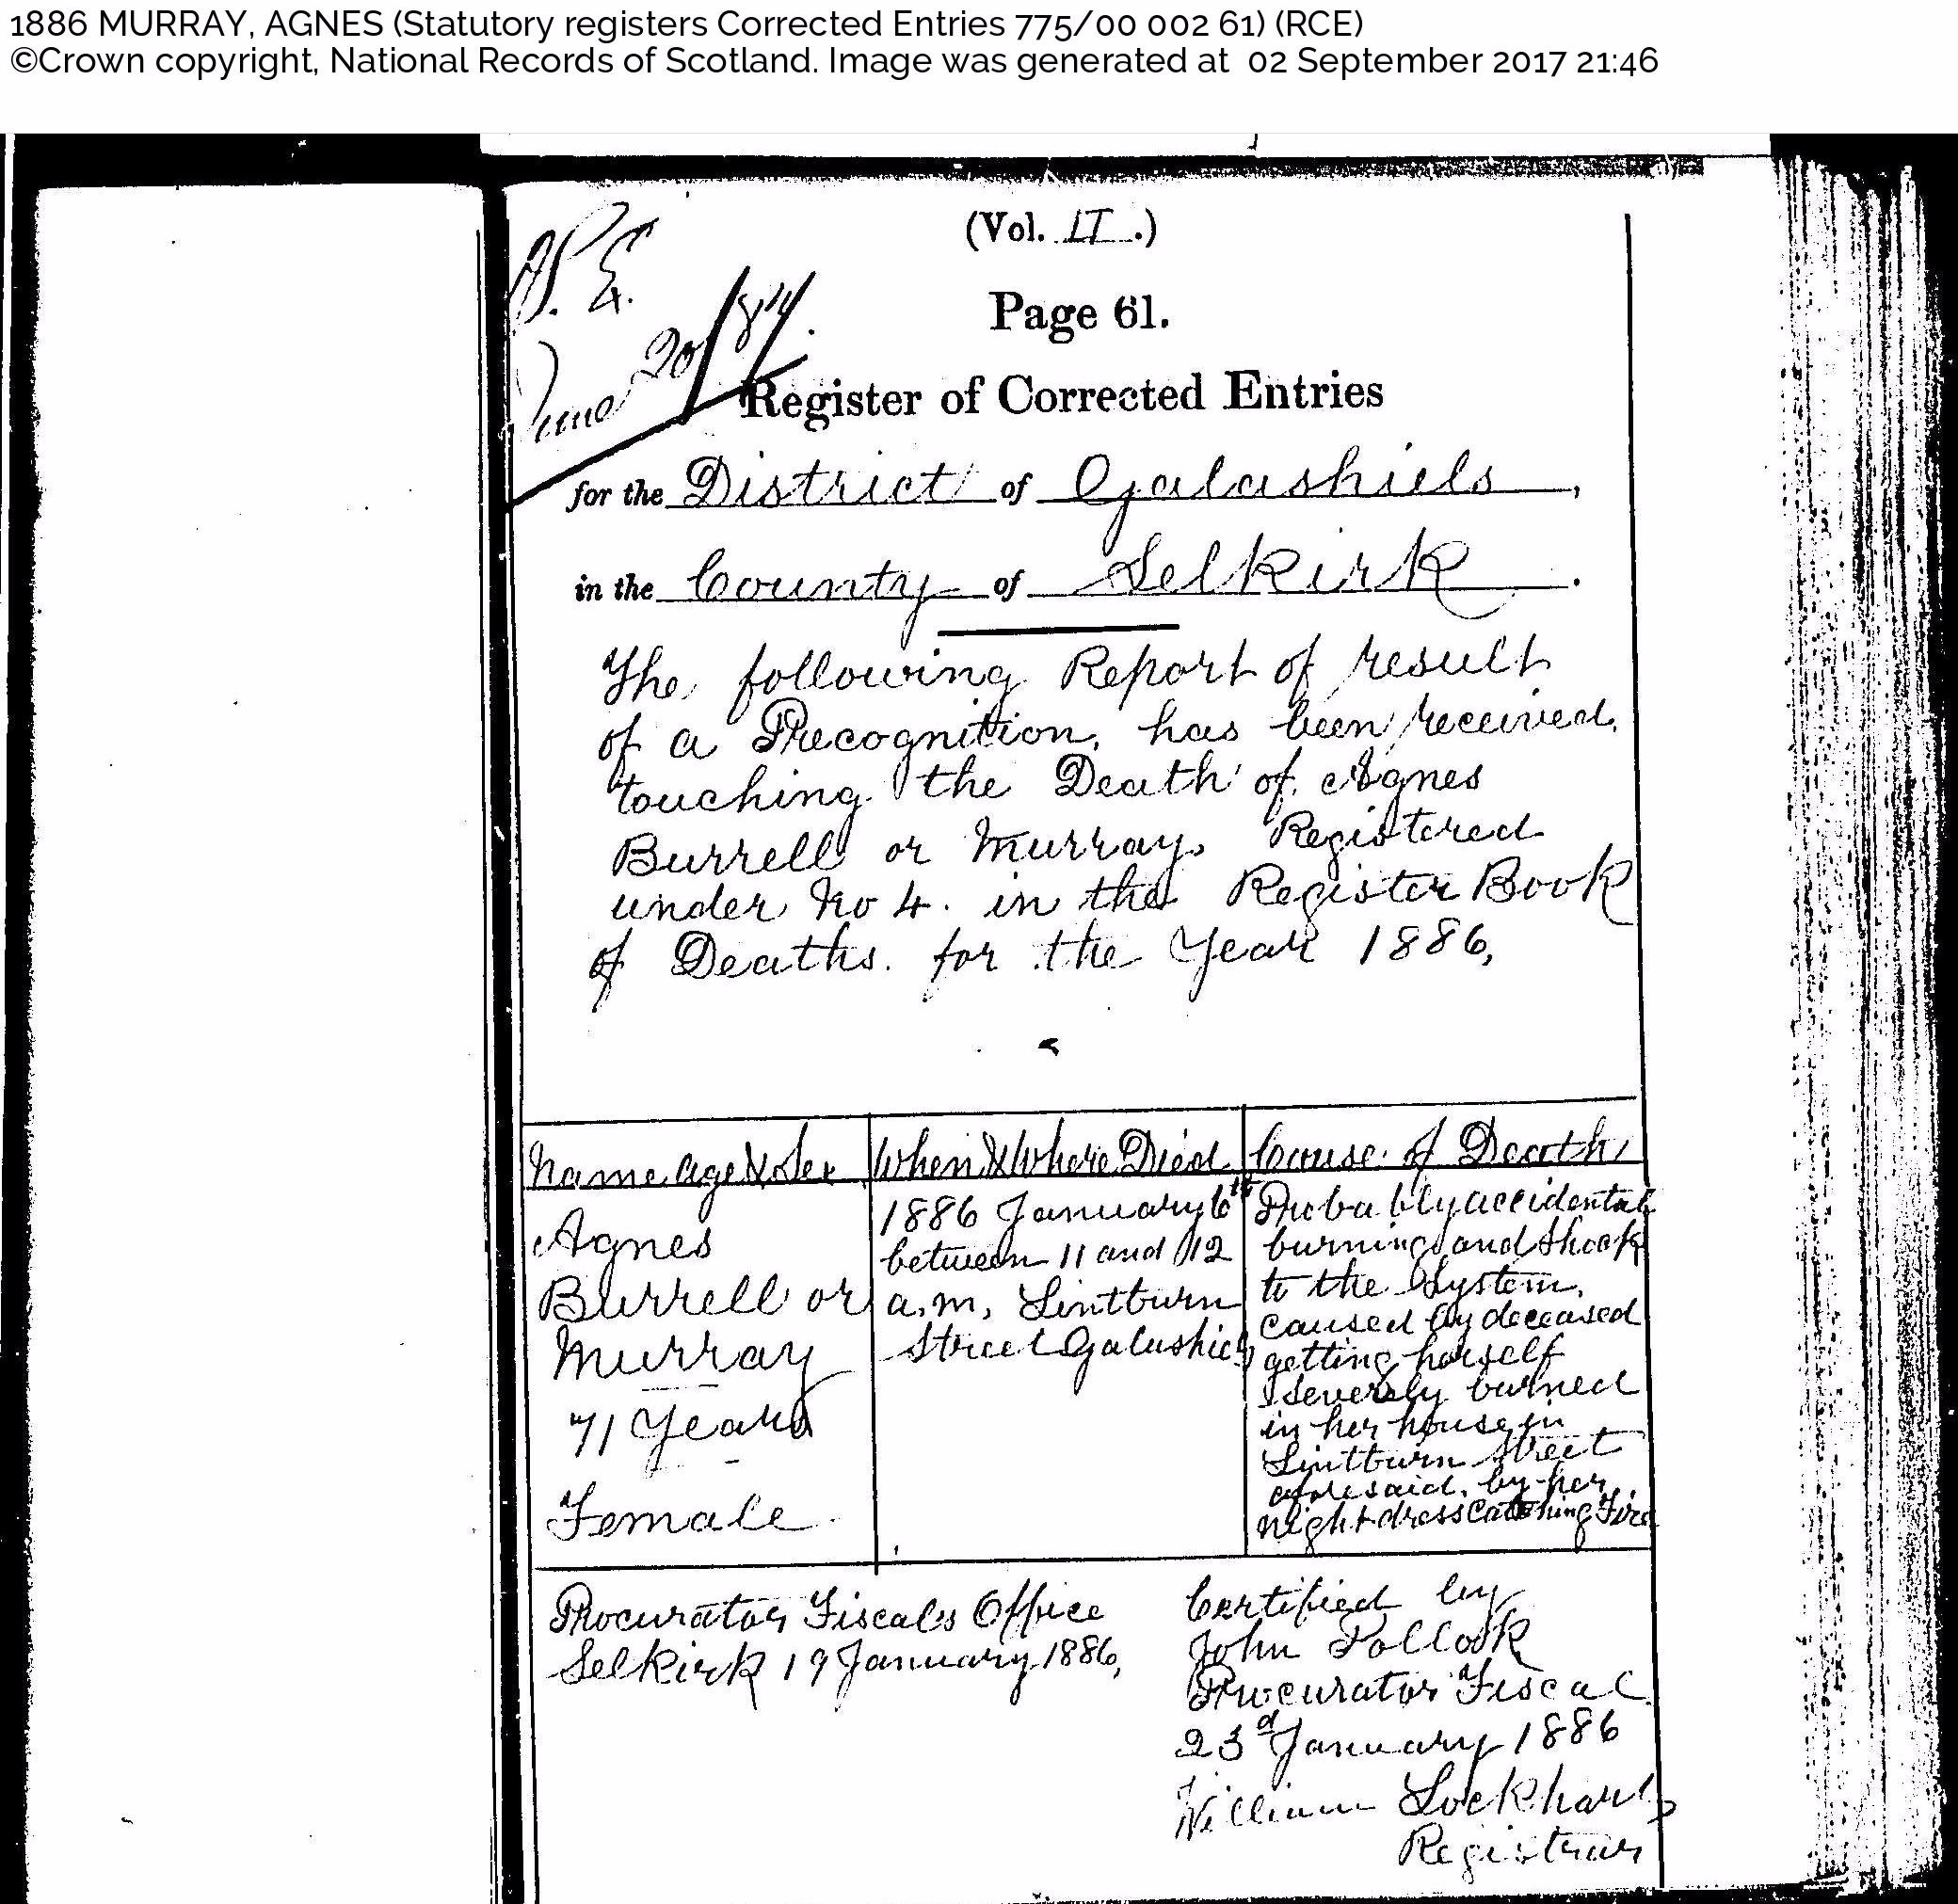 1886 MURRAY, AGNES (Statutory registers Corrected Entries 775/00 002 61) (RCE)
©Crown copyright, National Records of Scotland. Image was generated at 02 September 2017 21:46
(Vol. II.)
Page 61.
June 20/87.
Register of Corrected Entries
for the District of Galashiels,
in the County of Selkirk.
The following Report of result
of a Precognition, has been received,
touching the Death of Agnes
Burrell or Murray, Registered
under No 4. in the Register Book
of Deaths. for the Year 1886,
Name Age & Sex
When & Where Died
Cause of Death
Agnes
Burrell or
Murray
71 Years
Female
1886 January 6th
between 11 and 12
a.m, Lintburn
Street Galashiels
Probably accidental
burning and Shock
to the System,
caused by deceased
getting herself
severely burned
in her house in
Lintburn Street
aforesaid, by her
night dress catching Fire
Procurator Fiscals Office
Selkirk 19 January 1886,
Certified by
John Pollock
Procurator Fiscal
23d January 1886
William Lockhart
Registrar